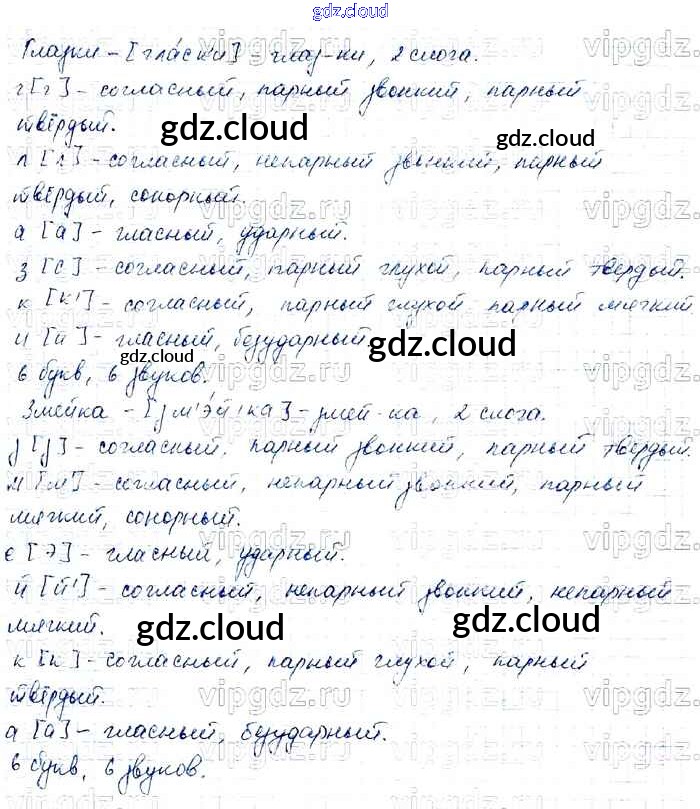 gdz.cloud
Глазки – [гла́ск'и] – глаз-ки, 2 слога.
г [г] – согласный, парный звонкий, парный
твёрдый.
л [л] – согласный, непарный звонкий, парный
твёрдый, сонорный.
а [а] – гласный, ударный.
з [с] – согласный, парный глухой, парный твердый.
к [к'] – согласный, парный глухой парный мягкий
и [и] – гласный, безударный
6 букв, 6 звуков.
Змейка – [зм'э́й'ка] – змей-ка, 2 слога.
з [з] – согласный, парный звонкий, парный твердый.
м [м'] – согласный, непарный звонкий, парный
мягкий, сонорный.
е [э] – гласный, ударный.
й [й'] – согласный, непарный звонкий, непарный
мягкий.
к [к] – согласный, парный глухой, парный
твёрдый.
а [а] – гласный, безударный.
6 букв, 6 звуков.
gdz.cloud
gdz.cloud
gdz.cloud
gdz.cloud
gdz.cloud
gdz.cloud
vipgdz.ru